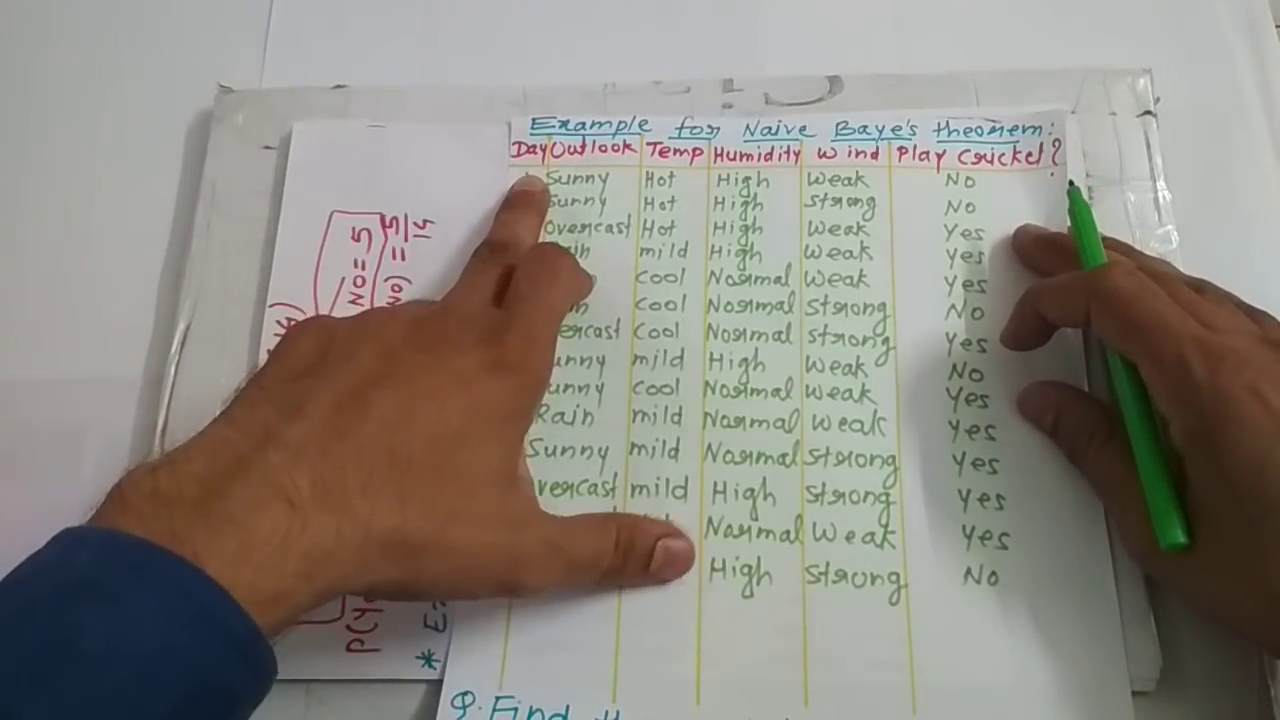 Example for Naive Baye's theorem:
Day Outlook Temp Humidity Wind Play Cricket?
Sunny Hot High Weak No
Sunny Hot High Strong No
Overcast Hot High Weak Yes
mild High Weak Yes
cool Normal Weak Yes
cool Normal Strong No
cool Normal Strong Yes
mild High Weak No
cool Normal Weak Yes
Rain mild Normal Weak Yes
Sunny mild Normal Strong Yes
mild High Strong Yes
Normal Weak Yes
High Strong No
Q. Find
NO = 5
= 5/14